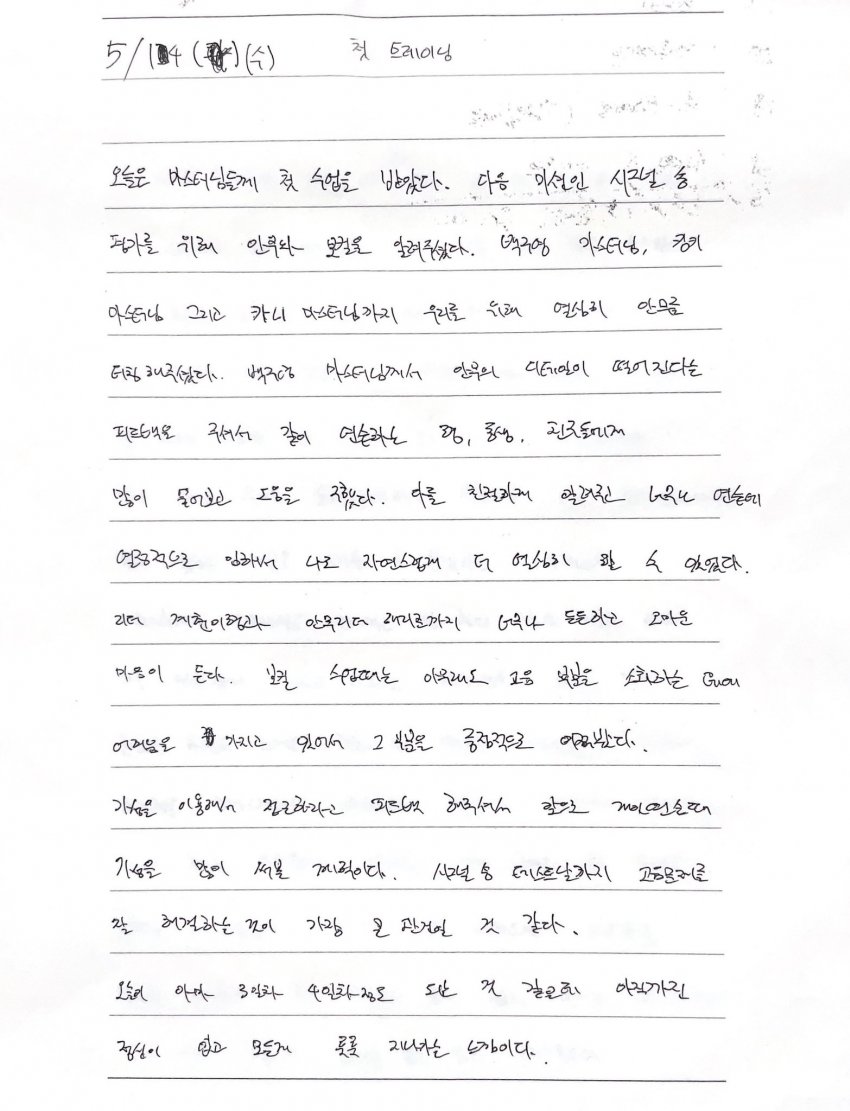 5/14 (수) 첫 트레이닝
오늘은 마스터님들께 첫 수업을 받았다. 다음 미션인 시그널 송
평가를 위해 안무와 보컬을 알려주셨다. 백지영 마스터님, 킹키
마스터님 그리고 카니 마스터님까지 우리를 위해 열심히 안무를
티칭해주셨다. 백지영 마스터님께서 안무의 디테일이 떨어진다는
피드백을 주셔서 같이 연습하는 형, 동생, 친구들에게
많이 물어보고 도움을 구했다. 다들 친절하게 알려주고 너무나 연습에
열정적으로 임해서 나도 자연스럽게 더 열심히 할 수 있었다.
리더 계훈이형과 안무리더 까지 너무나 든든하고 고마운
마음이 든다. 보컬 수업때는 아무래도 고음 부분을 소화하는
어려움을 가지고 있어서 그 부분을 중점적으로 여쭤봤다.
가성을 이용해서 접근하라고 피드백 해주셔서 앞으로 개인연습때
가성을 많이 써볼 계획이다. 시그널 송 테스트날까지 고음문제를
잘 해결하는 것이 가장 큰 관건일 것 같다.
오늘이 아마 3일차 4일차정도 된 것 같은데 아직까진
정신이 없고 모든게 훅훅 지나가는 느낌이다.